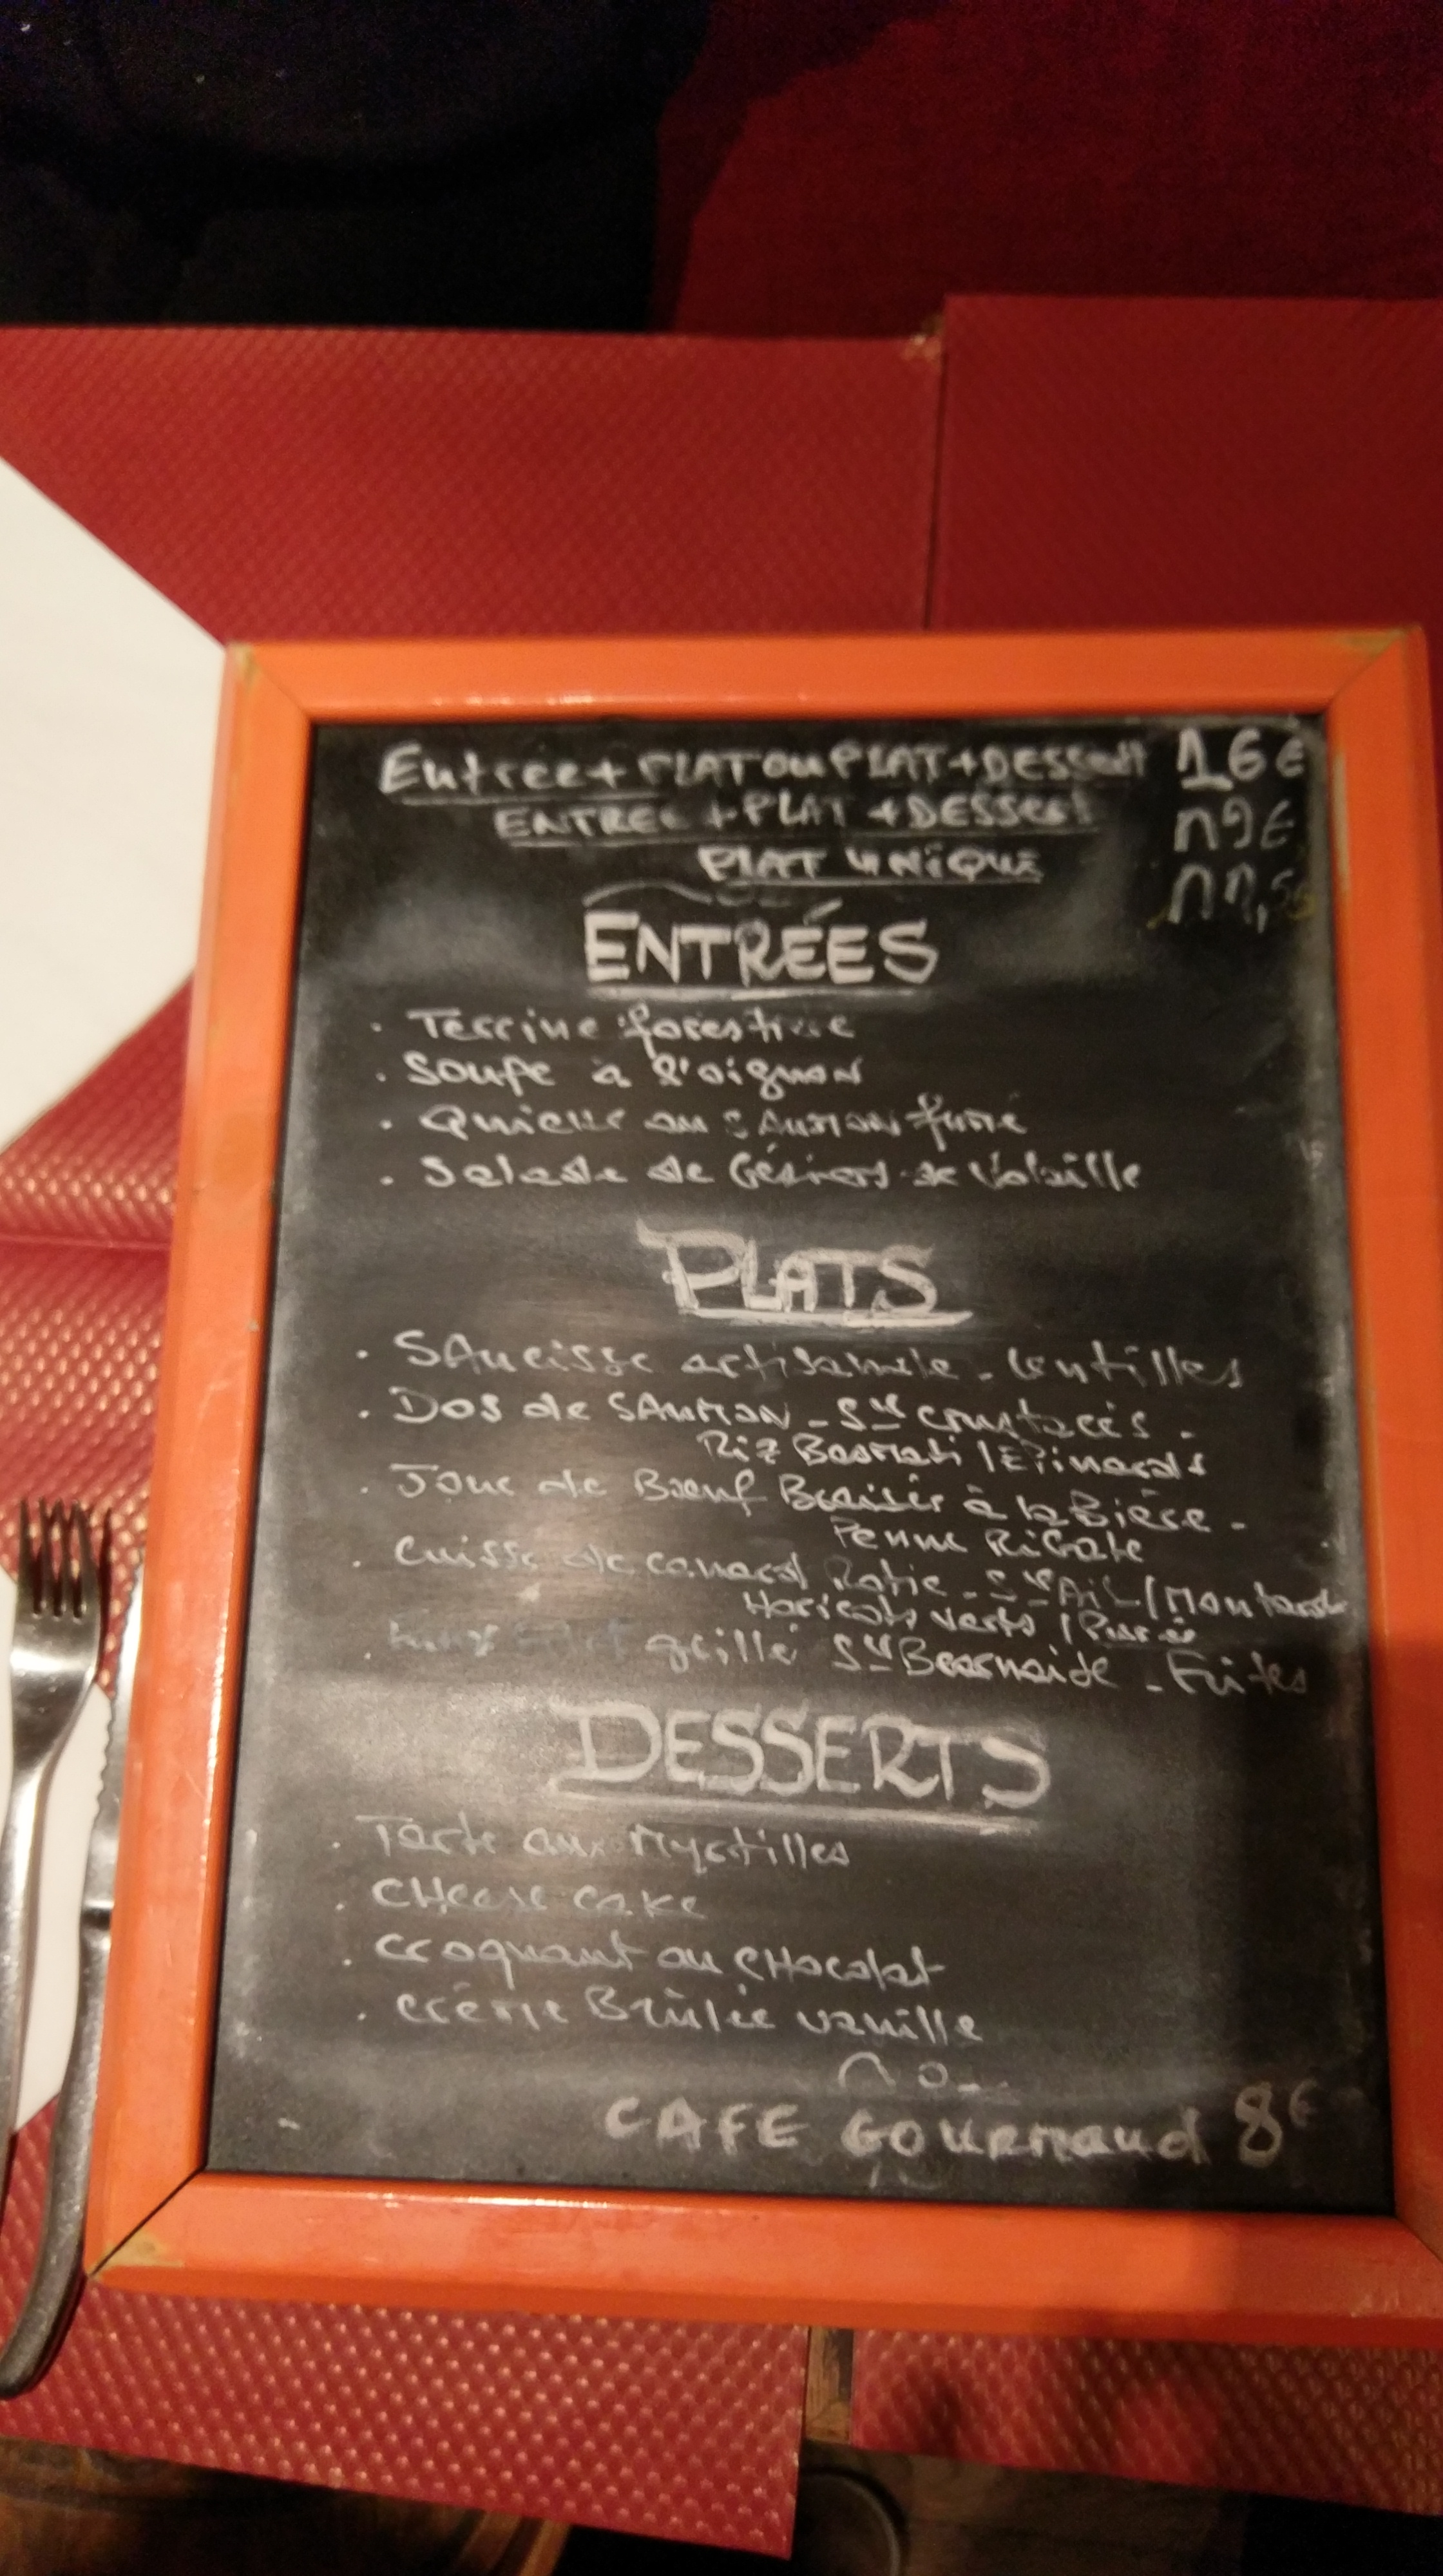 Entrée + PLAT ou PLAT + DESSERT 16€
ENTREE + PLAT + DESSERT 19€
PLAT UNIQUE 11,5
ENTRÉES
. Terrine forestière
. Soupe à l'oignon
. Quiche au SAUMON fumé
. Salade de Gésiers de Volaille
PLATS
. SAucisse artisanale - lentilles
. Dos de SAUMON - Sce crustacés -
Riz Basmati / Epinards
. Joue de Bœuf Braisée à la Bière -
Penne RiGate
. Cuisse de canard Rotie - Sce AiL / Moutarde
Haricots verts / Purée
. grillé Sce Bearnaise - Frites
DESSERTS
. Tarte aux Myrtilles
. CHeese cake
. croquant au CHocolat
. crème Brûlée vanille
CAFE GOURMAND 8€